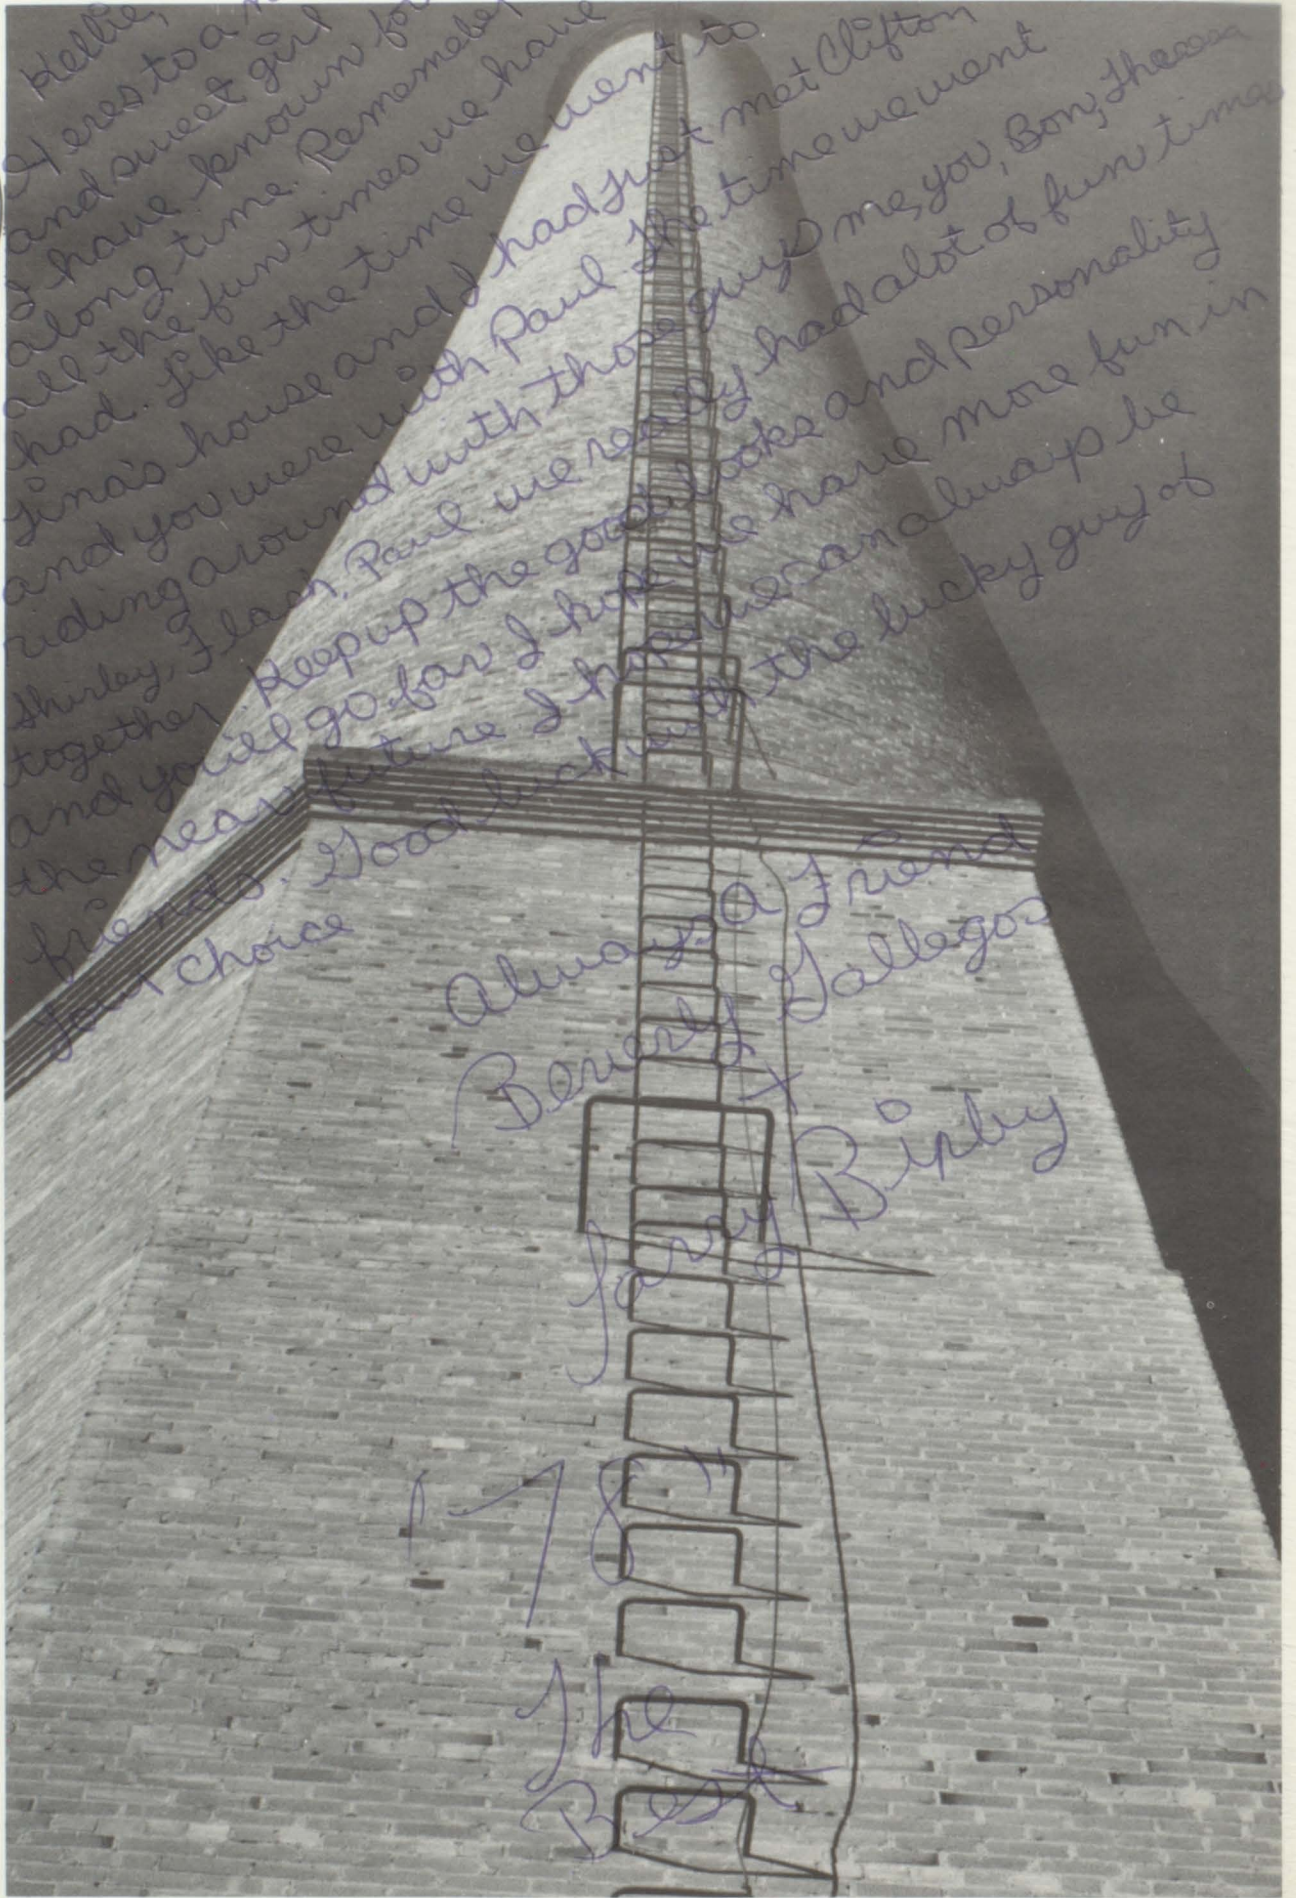 Kellie,
Heres to a
and sweet girl
I have known for
along time. Remember
all the fun times we have
had. Like the time we went to
Tina's house and I had just met Clifton
and you were with Paul. The time we went
riding around with those guys me, you, Bon, Theresa
Shirley, Paul we really had alot of fun times
together. Keep up the good looks and personality
and you'll go far I hope we have more fun in
the near future I hope we can always be
friends. Good luck with the lucky guy of
your choice
Always a Friend
Beverly Gallegos
+
Larry Bixby
"78"
The
Best